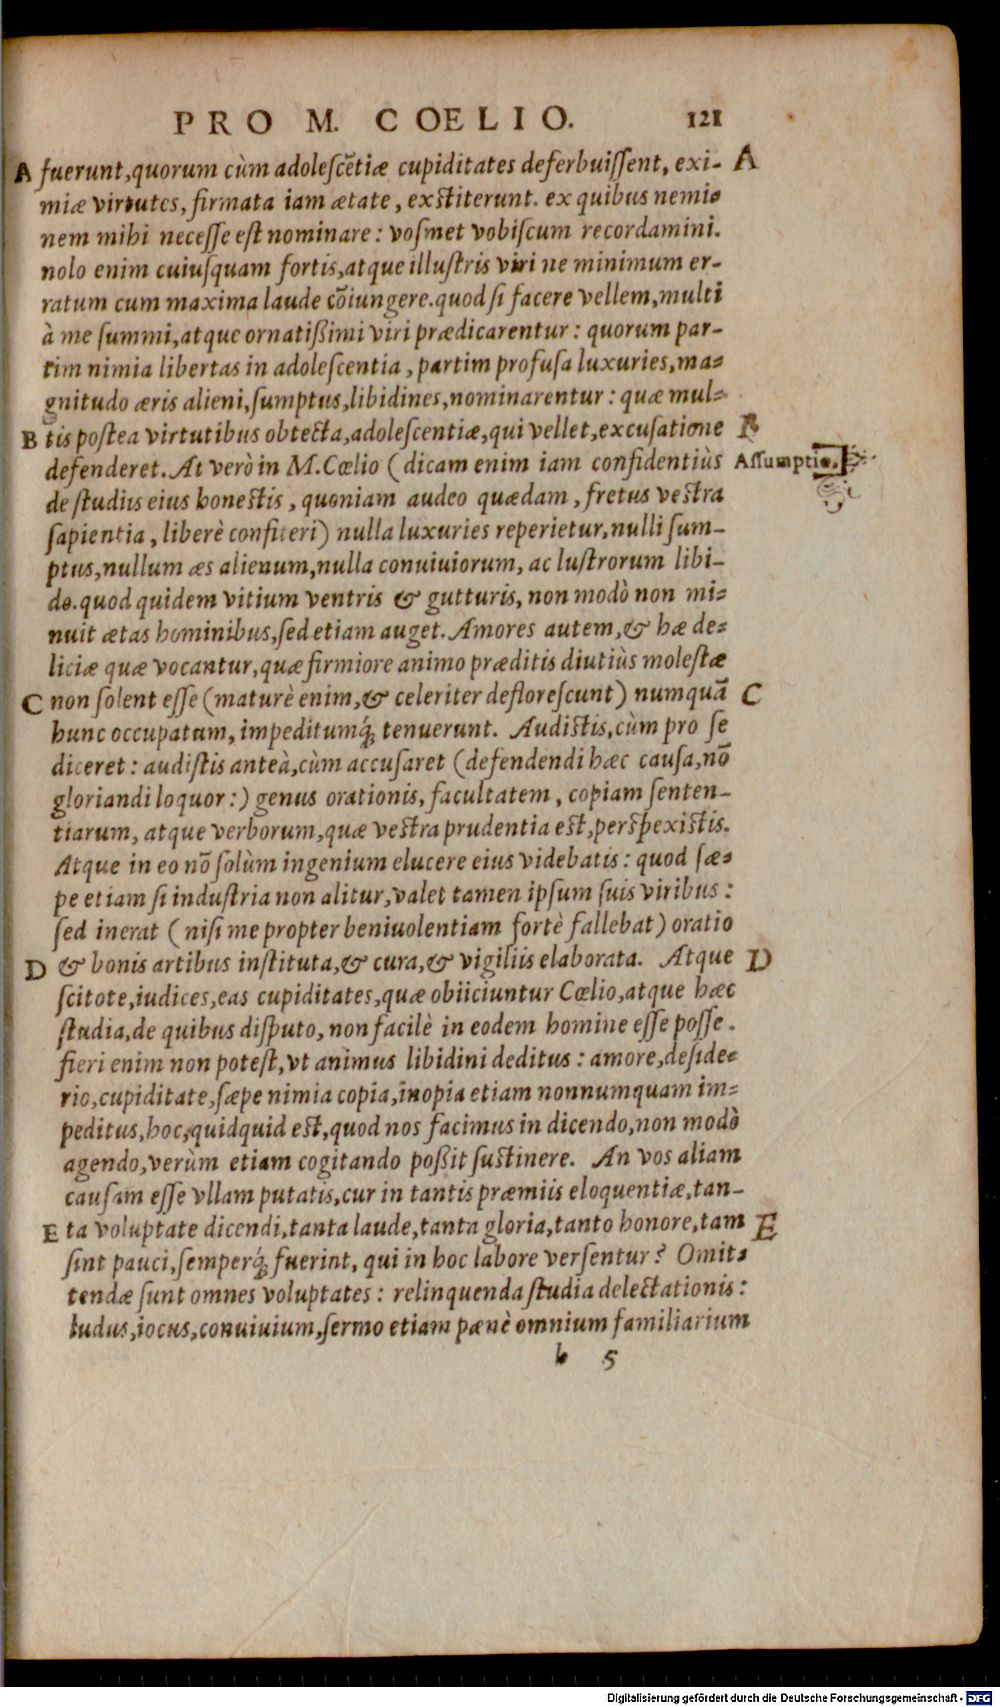 PRO M. COELIO. 121
A fuerunt,quorum cùm adolescētiæ cupiditates deferbuissent, exi- A
miæ virtutes, firmata iam ætate, exstiterunt. ex quibus nemi=
nem mihi necesse est nominare: vosmet vobiscum recordamini.
nolo enim cuiusquam fortis,atque illustris viri ne minimum er-
ratum cum maxima laude cōiungere.quod si facere vellem,multi
à me summi,atque ornatißimi viri prædicarentur: quorum par-
tim nimia libertas in adolescentia, partim profusa luxuries,ma=
gnitudo æris alieni,sumptus,libidines,nominarentur: quæ mul=
B tis postea virtutibus obtecta,adolescentiæ,qui vellet,excusatione B
defenderet. At verò in M.Cœlio (dicam enim iam confidentiùs Assumptio.
de studiis eius honestis, quoniam audeo quædam, fretus vestra
sapientia, liberè confiteri) nulla luxuries reperietur,nulli sum-
ptus,nullum æs alienum,nulla conuiuiorum, ac lustrorum libi-
do.quod quidem vitium ventris & gutturis, non modò non mi=
nuit ætas hominibus,sed etiam auget. Amores autem,& hæ de=
liciæ quæ vocantur,quæ firmiore animo præditis diutiùs molestæ
C non solent esse (maturè enim,& celeriter deflorescunt) numquā C
hunc occupatum, impeditumq́; tenuerunt. Audistis,cùm pro se
diceret: audistis anteà,cùm accusaret (defendendi hæc causa,nō
gloriandi loquor:) genus orationis, facultatem, copiam senten-
tiarum, atque verborum,quæ vestra prudentia est,perspexistis.
Atque in eo nō solùm ingenium elucere eius videbatis: quod sæ=
pe etiam si industria non alitur,valet tamen ipsum suis viribus:
sed inerat (nisi me propter beniuolentiam fortè fallebat) oratio
D & bonis artibus instituta,& cura,& vigiliis elaborata. Atque D
scitote,iudices,eas cupiditates,quæ obiiciuntur Cœlio,atque hæc
studia,de quibus disputo, non facilè in eodem homine esse posse.
fieri enim non potest,vt animus libidini deditus: amore,deside=
rio,cupiditate,sæpe nimia copia,inopia etiam nonnumquam im=
peditus,hoc,quidquid est,quod nos facimus in dicendo,non modò
agendo,verùm etiam cogitando poßit sustinere. An vos aliam
causam esse vllam putatis,cur in tantis præmiis eloquentiæ,tan-
E ta voluptate dicendi,tanta laude,tanta gloria,tanto honore,tam E
sint pauci,semperq́; fuerint, qui in hoc labore versentur? Omit=
tendæ sunt omnes voluptates: relinquenda studia delectationis:
ludus,iocus,conuiuium,sermo etiam pænè omnium familiarium
b 5
Digitalisierung gefördert durch die Deutsche Forschungsgemeinschaft - DFG